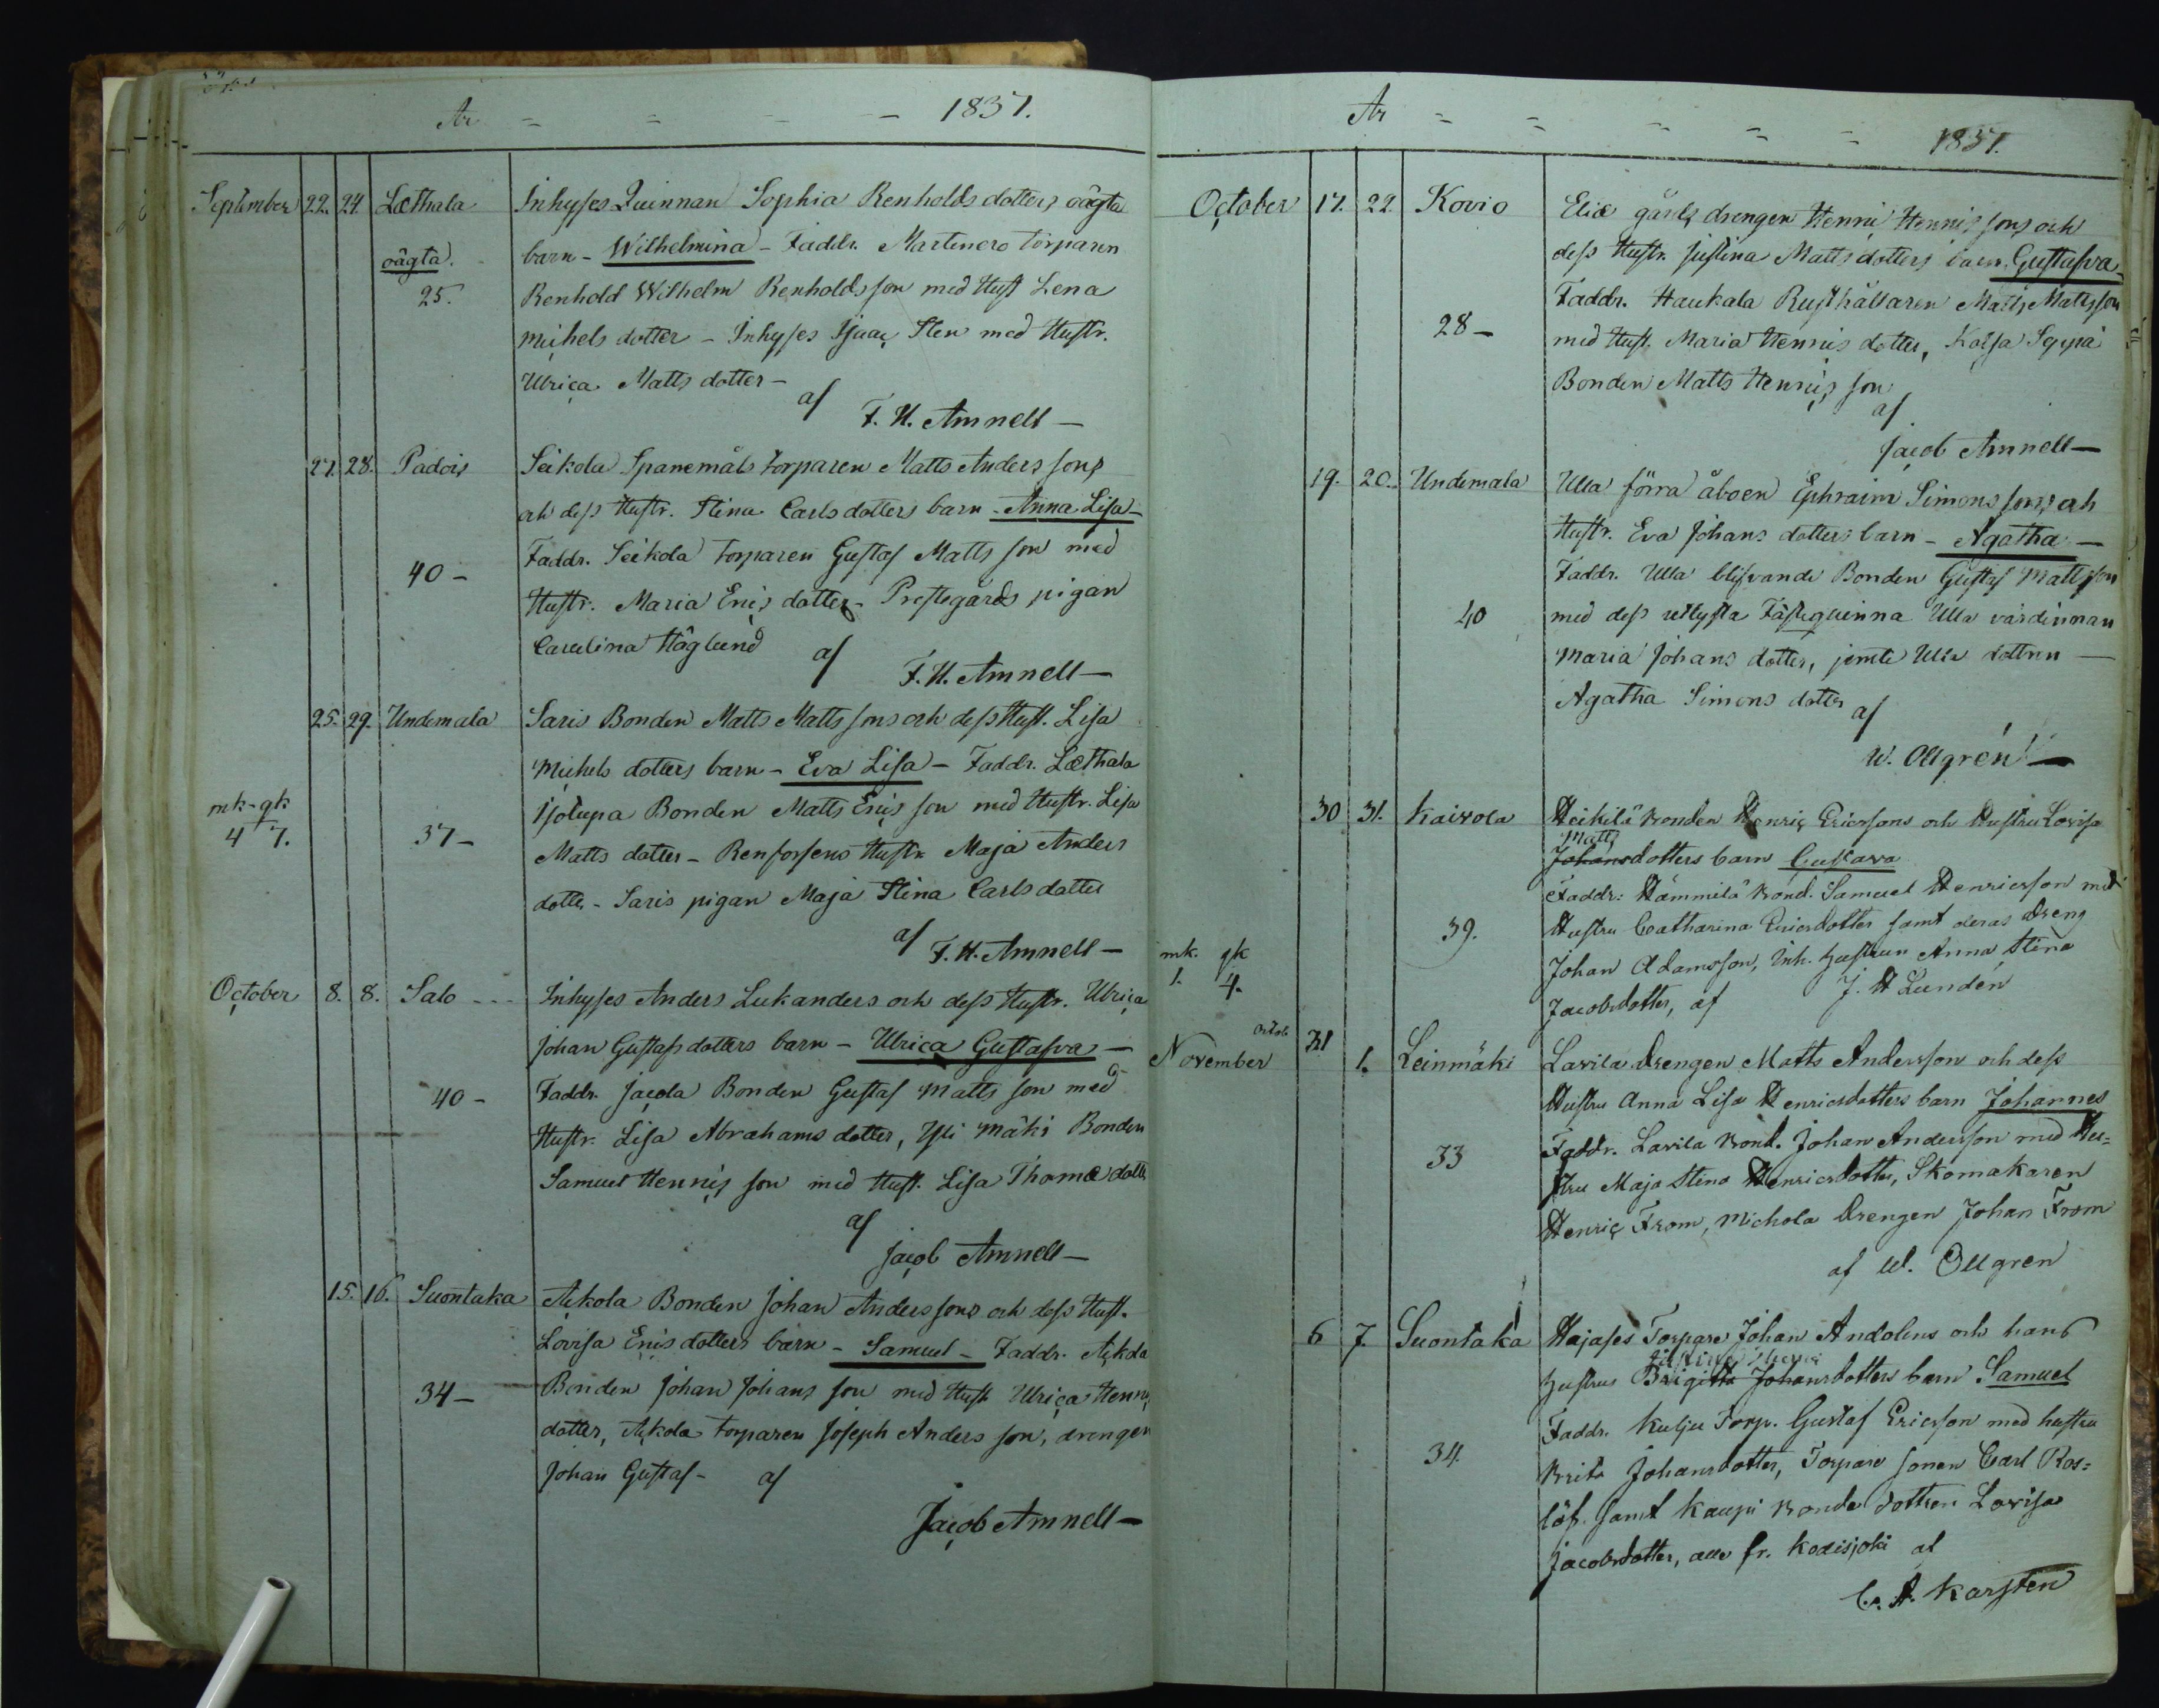 År - - - - 1837.
September 22. 24. Læthala Inhyses Quinnan Sophia Renholds dotters oägta
oägta. barn - Wilhelmina - Faddr. Martenero torparen
25. Renhold Wilhelm Renholds son med Hust Lena
Michels dotter - Inhyses Isaac Sten med Hustr.
Ulrica Matts dotter -
af
F. H. Amnell -
27. 28. Padois Seikola Spanemåls torparen Matts Anders sons
och dess Hustr. Stina Carls dotters barn - Anna Lisa -
Faddr. Seikola torparen Gustaf Matts son med
40 -
Hustr. Maria Erics dotter - Prestegårds pigan
Carolina Höglund af
F. H. Amnell -
25. 29. Undemala Saris Bonden Matts Matts sons och dess Hust. Lisa
Michels dotters barn - Eva Lisa - Faddr. Læthala
mk - qk
4 7.
Isotupa Bonden Matts Erics son med Hustr. Lisa
37 -
Matts dotter - Renforsens Hustr Maja Anders
dotter - Saris pigan Maja Stina Carls dotter
af F. H. Amnell -
October 8. 8. Salo - - - Inhyses Anders Lukanders och dess Hustr. Ulrica
Johan Gustafs dotters barn - Ulrica Gustafva -
40 - Faddr. Jacola Bonden Gustaf Matts son med
Hustr. Lisa Abrahams dotter, Yli Mäki Bonden
Samuel Henrics son med Hust. Lisa Thomæ dotter
af
Jacob Amnell -
15. 16. Suontaka Ackola Bonden Johan Anders sons och dess Hust.
Lovisa Erics dotters barn - Samuel - Faddr. Ackola
34 - Bonden Johan Johans son med Hust Ulrica Henrics
dotter, Ackola torparen Joseph Anders son, drengen
Johan Gustaf - af
Jacob Amnell -
År - - - - - 1837.
October 17. 22. Kovio Eliæ gårds drengen Henric Henrics sons och
dess Hustr. Justina Matts dotters barn Gustafva -
Faddr. Haukala Rusthållaren Matts Matts son
28 -
med Hust. Maria Henrics dotter, Kolsa Seppä
Bonden Matts Henrics son
af
Jacob Amnell -
19. 20. Undemala Ulla förra åboen Ephraim Simons sons och
Hustr. Eva Johans dotters barn - Agatha -
Faddr. Ulla blifvande Bonden Gustaf Matts son
40 med dess utlysta Fästeqvinna Ulla värdinnan
Maria Johans dotter, jemte Ulla dottren -
Agatha Simons dotter af
W. Ollgrén -
30 31. Kairola Heikilä Bonden Henric Ericssons och Hustru Lovisa
Matts
Johansdotters barn Gustava
Faddr: Hämmilä Bond. Samuel Henricsson med
39. Hustru Catharina Ericsdotter samt deras dreng
mk. qk
1. 4.
Johan Adamsson, Inh. hustrun Anna Stina
Jacobsdotter, af J. H Lundén
octob.
November 31 1. Leinmäki Lavila drengen Matts Andersson och dess
Hustru Anna Lisa Henricsdotters barn Johannes
33 Faddr. Lavila Bond. Johan Andersson med Hu=
stru Maja Stina Henricsdotter, Skomakaren
Henric From, Michola drengen Johan From
af W. Ollgren
6 7. Suontaka Hajases Torpare Johan Andolins och hans
hustrus Brigitta Johansdotters barn Samuel
Faddr. Kulju Torp. Gustaf Ericsson med hustru
34. Brita Johansdotter, Torpare sonen Carl Ros=
löf samt Kaupi Bonde dottren Lovisa
Jacobsdotter, alla fr. Kodisjoki af
C. A. Karsten